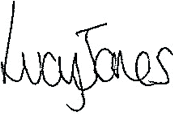 Lucy Jones